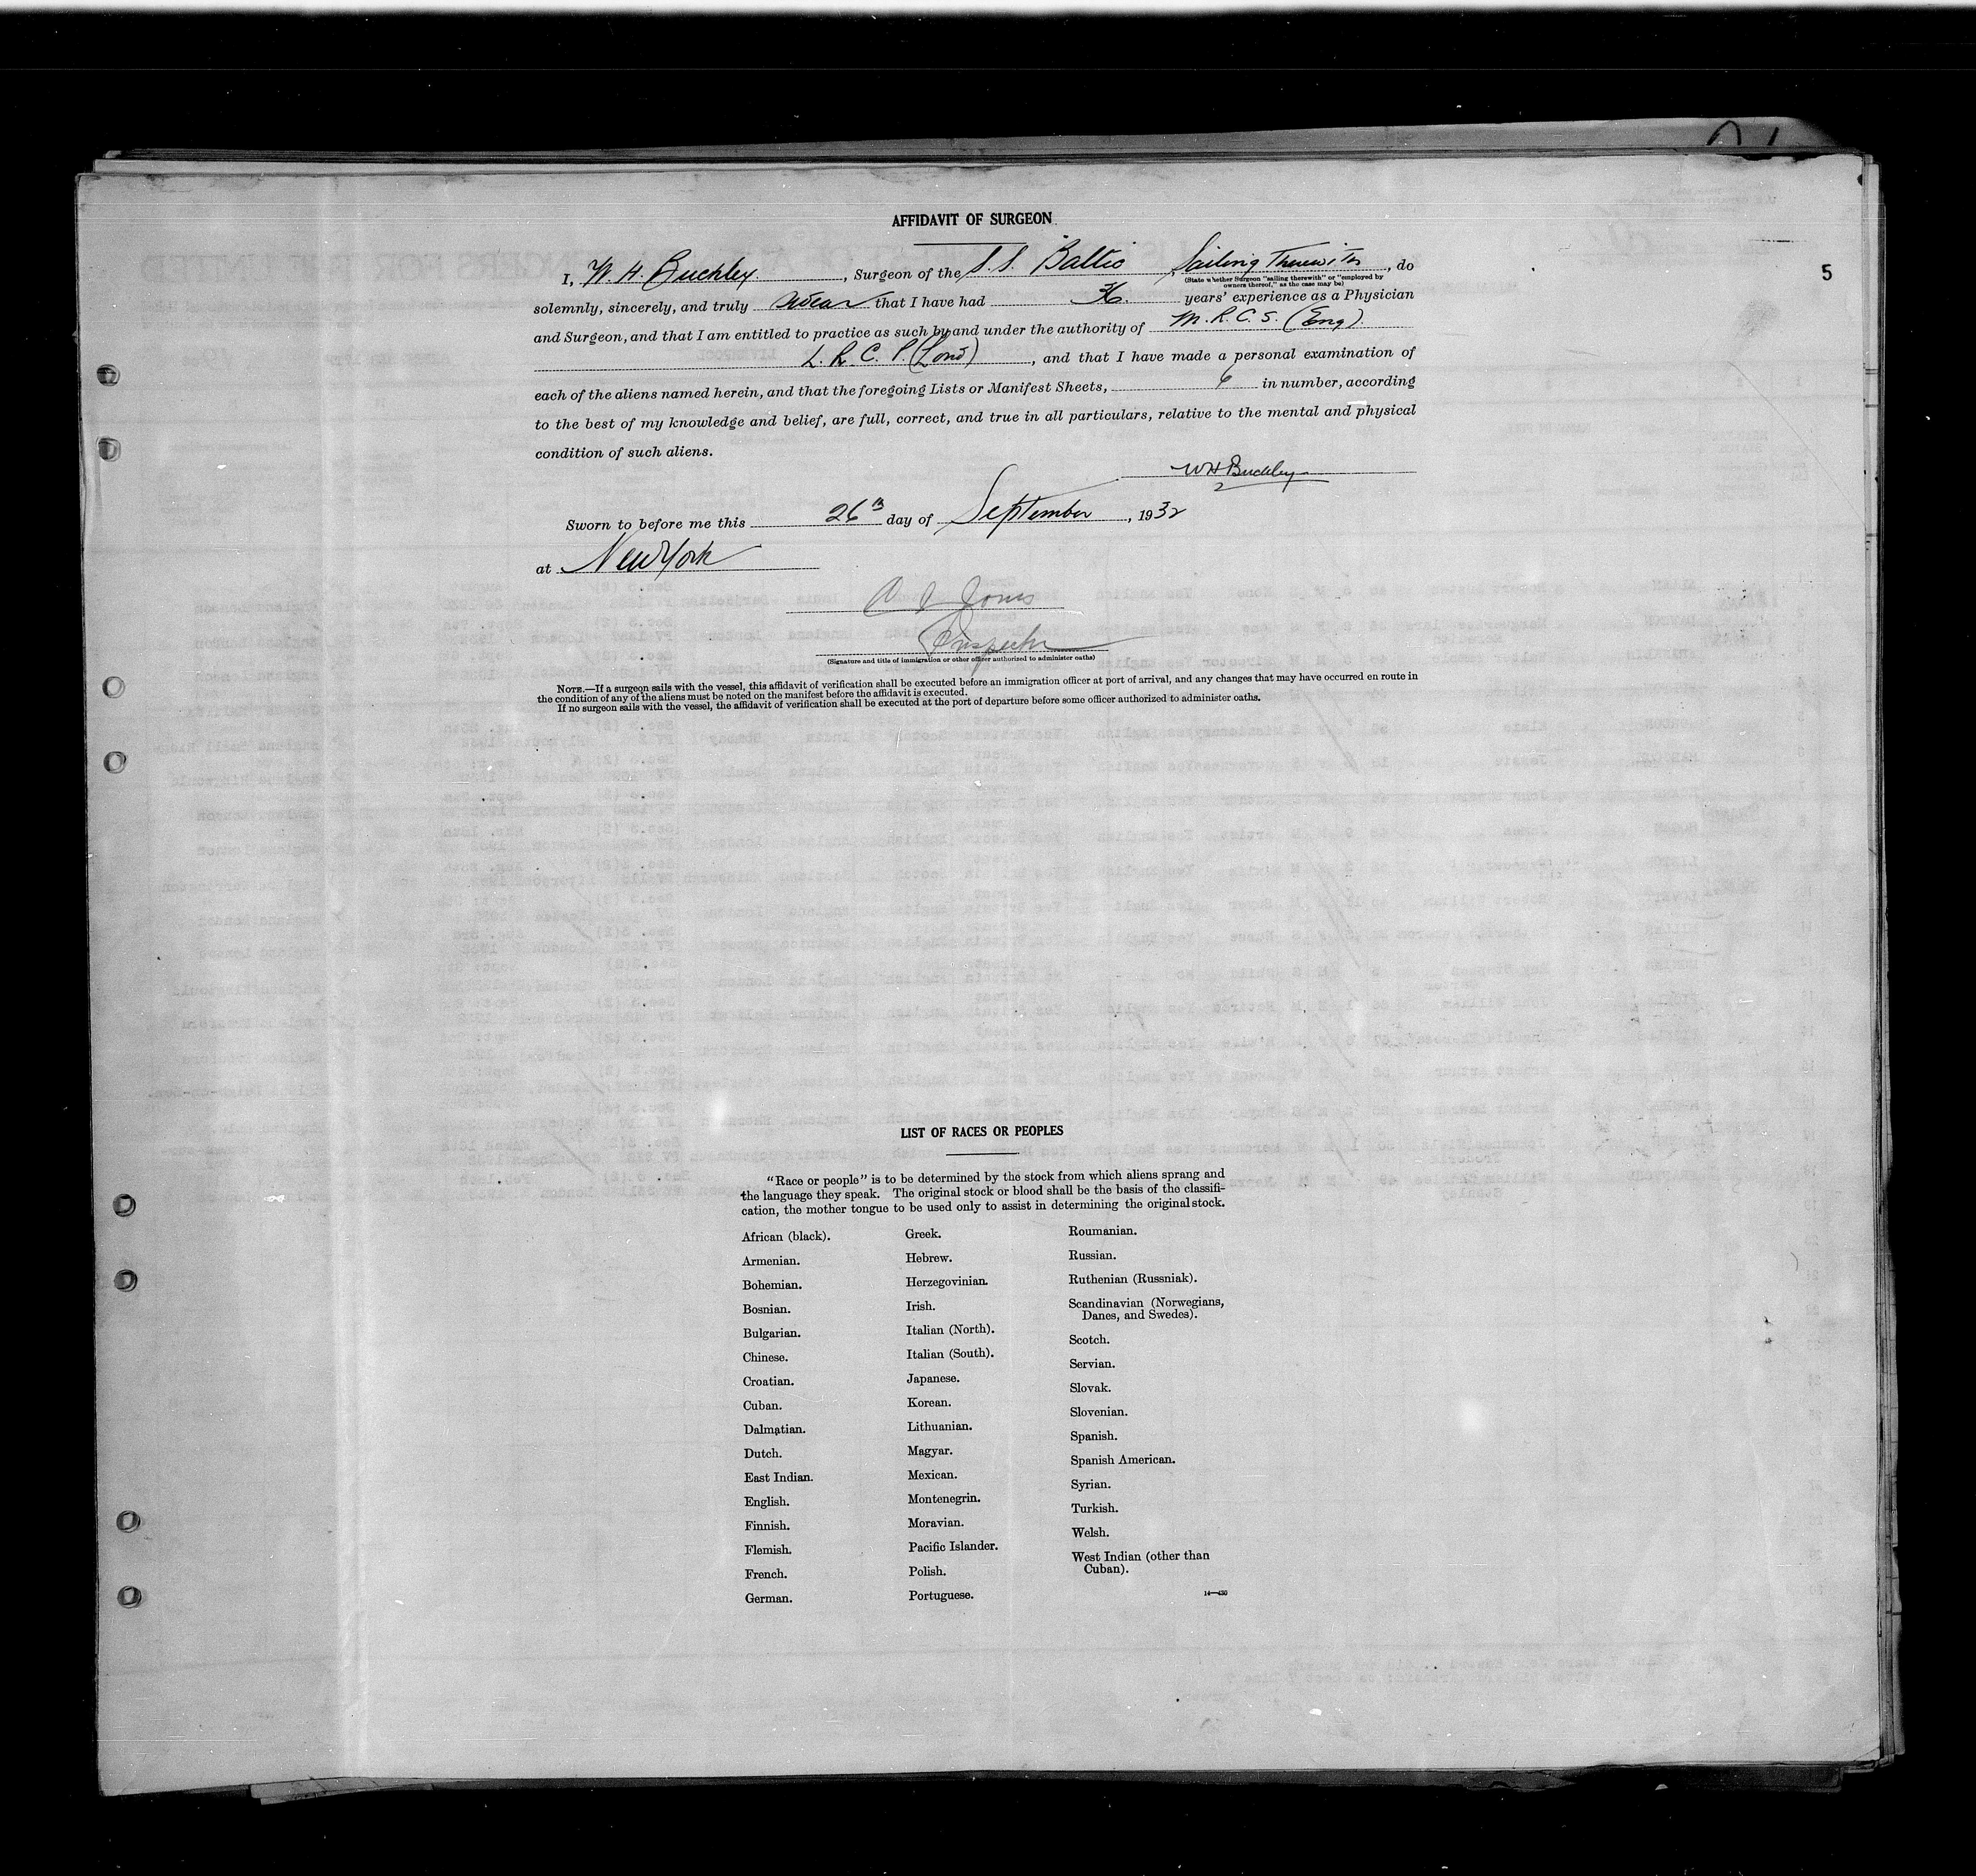 5
AFFIDAVIT OF SURGEON
I, W. H. Buckley, Surgeon of the S.S. Baltic, Sailing Therewith, do
(State whether Surgeon "sailing therewith" or "employed by
owners thereof," as the case may be)
solemnly, sincerely, and truly swear that I have had 36 years' experience as a Physician
and Surgeon, and that I am entitled to practice as such by and under the authority of M.R.C.S. (Eng).
L.R.C.P. (Lond), and that I have made a personal examination of
each of the aliens named herein, and that the foregoing Lists or Manifest Sheets, 6 in number, according
to the best of my knowledge and belief, are full, correct, and true in all particulars, relative to the mental and physical
condition of such aliens.
WH Buckley
Sworn to before me this 26th day of September, 1932
at New York
Jones
Inspector
(Signature and title of immigration or other officer authorized to administer oaths)
NOTE.—If a surgeon sails with the vessel, this affidavit of verification shall be executed before an immigration officer at port of arrival, and any changes that may have occurred en route in
the condition of any of the aliens must be noted on the manifest before the affidavit is executed.
If no surgeon sails with the vessel, the affidavit of verification shall be executed at the port of departure before some officer authorized to administer oaths.
LIST OF RACES OR PEOPLES
"Race or people" is to be determined by the stock from which aliens sprang and
the language they speak. The original stock or blood shall be the basis of the classifi-
cation, the mother tongue to be used only to assist in determining the original stock.
African (black).
Armenian.
Bohemian.
Bosnian.
Bulgarian.
Chinese.
Croatian.
Cuban.
Dalmatian.
Dutch.
East Indian.
English.
Finnish.
Flemish.
French.
German.
Greek.
Hebrew.
Herzegovinian.
Irish.
Italian (North).
Italian (South).
Japanese.
Korean.
Lithuanian.
Magyar.
Mexican.
Montenegrin.
Moravian.
Pacific Islander.
Polish.
Portuguese.
Roumanian.
Russian.
Ruthenian (Russniak).
Scandinavian (Norwegians,
Danes, and Swedes).
Scotch.
Servian.
Slovak.
Slovenian.
Spanish.
Spanish American.
Syrian.
Turkish.
Welsh.
West Indian (other than
Cuban).
14—430